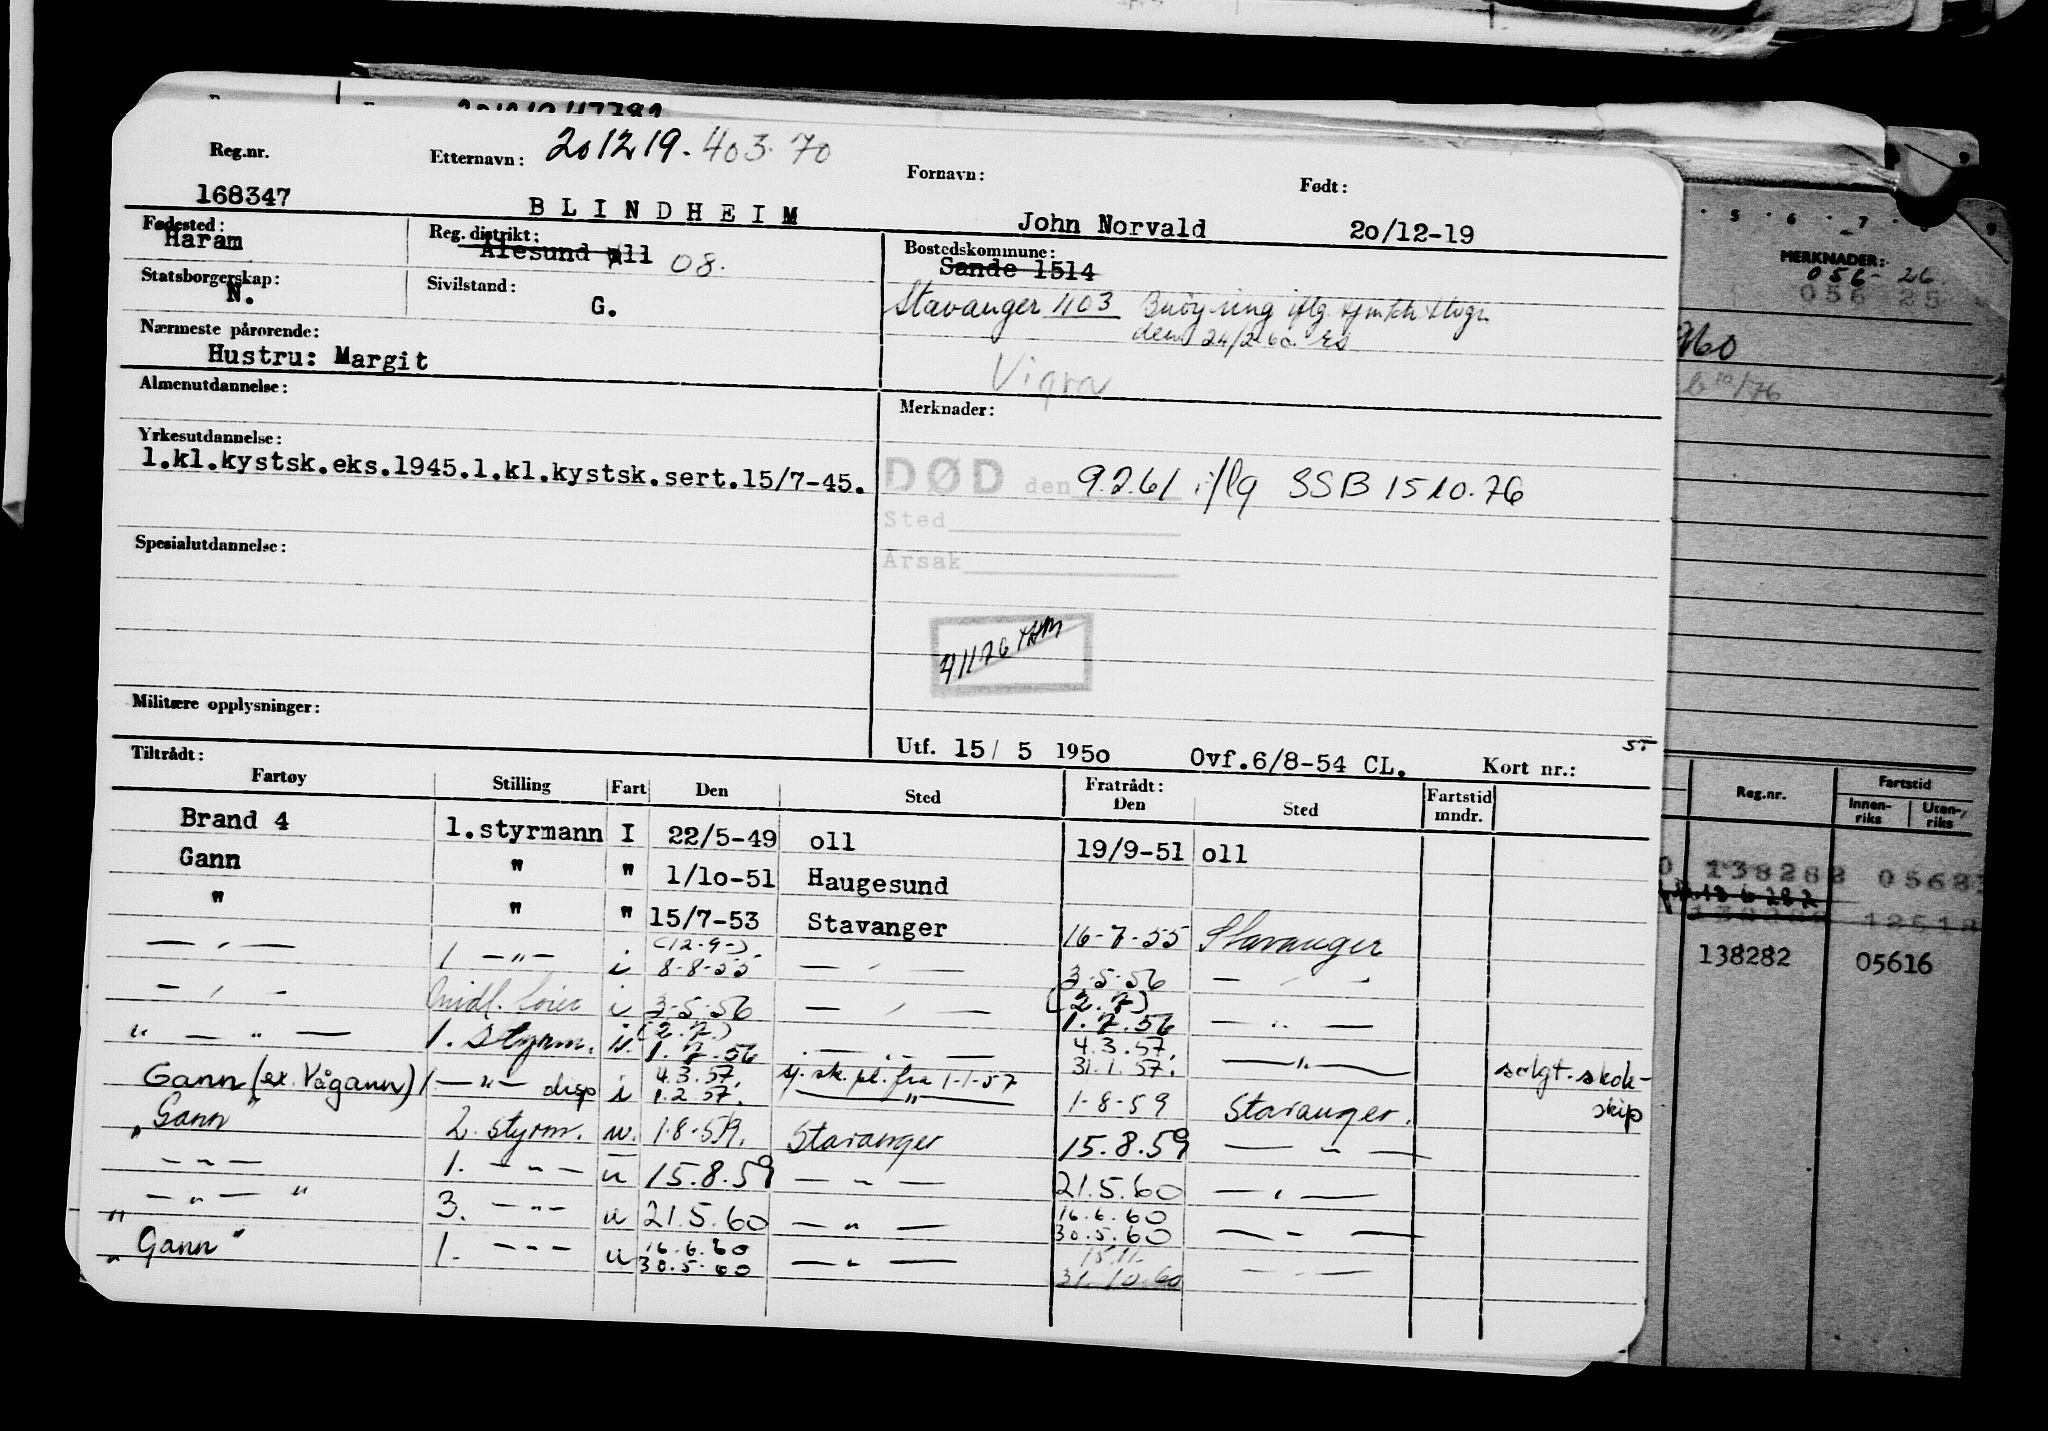 Reg.nr. Etternavn: 201219.403.70 Fornavn: Født:
168347 BLINDHEIM John Norvald 20/12-19
Fødested: Reg. distrikt: Bostedskommune:
Haram Ålesund 08. Sande 1514
Statsborgerskap: Sivilstand:
N. G. Stavanger 1103
den 24/2 60
Nærmeste pårørende:
Hustru: Margit Vigra
Almenutdannelse: Merknader:
Yrkesutdannelse:
1.kl.kystsk.eks.1945.1.kl.kystsk.sert.15/7-45. DØD den 9.2.61 iflg SSB 15 10.76
Sted
Spesialutdannelse: Årsak
Militære opplysninger:
Utf. 15/ 5 1950 Ovf.6/8-54 CL. Kort nr.:
Tiltrådt: Fratrådt:
Fartøy Stilling Fart Den Sted Den Sted Fartstid mndr.
Brand 4 1.styrmann I 22/5-49 oll 19/9-51 oll
Gann " " 1/10-51 Haugesund
" " " 15/7-53 Stavanger 16-7-55 Stavanger
— " — 1 —"— i (12-9-) 8-8-55 — " — 3-5-56 — " —
— " — i 3-5-56 — " — (2.7) 1.7.56 — " —
" — " — 1. styrm. (2.7.) 1.7.56 — " — 4.3.57. 31.1.57. — " — solgt. skole-
Gann (ex. Vågann) 1 —"— disp i 4.3.57. 1.2.57. sj. sk. pl. fra 1-1-57 1-8-59 Stavanger. skip
"Gann" 2. styrm. 1.8.59. Stavanger 15.8.59 — " —
— " — 1. — " — u 15.8.59 — " — 21.5.60 — " —
" — " — " 3. — " — u 21.5.60 — " — 16.6.60 30.5.60 — " —
"Gann" 1. — " — u 16.6.60 30.5.60 — " — 15.11. 31.10.60 — " —
MERKNADER:
056- 26
056 25
Reg.nr. Fartstid
Innen-riks Uten-riks
138282
138282 05616